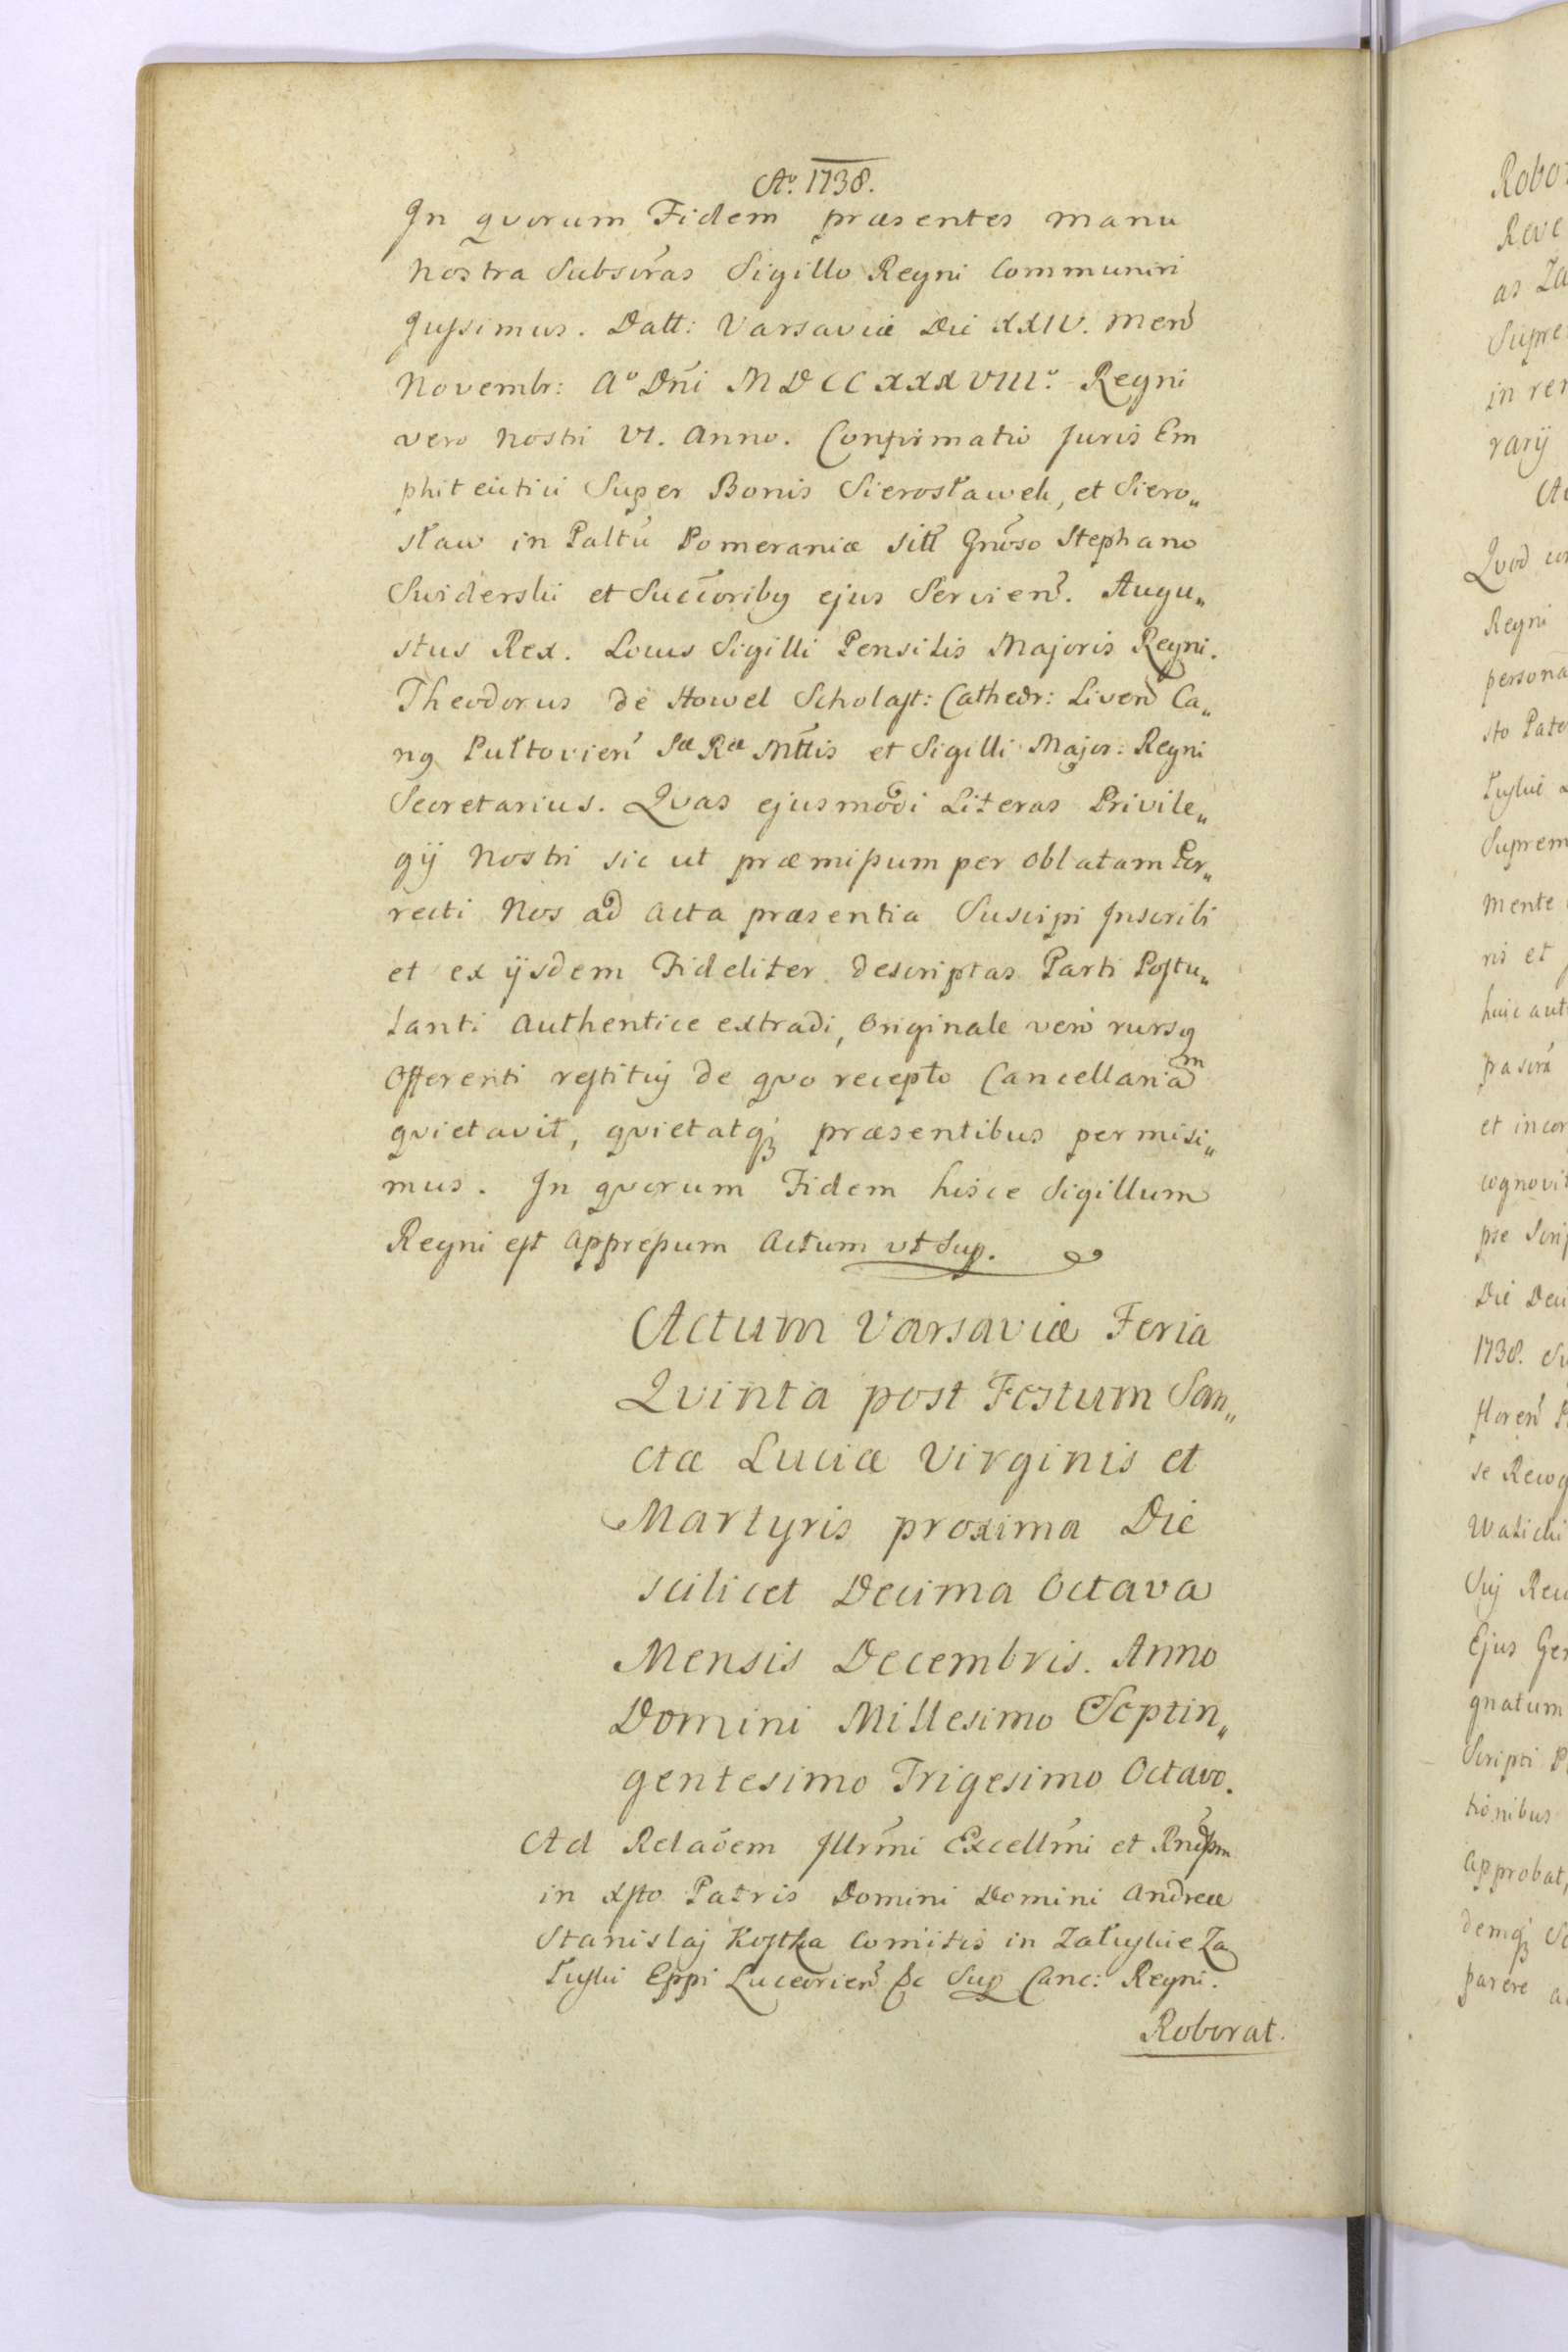 Aō. 1738.
In qvorum Fidem præsentes manu
Nostra Subscr̃as Sigillo Regni Communiri
Jussimus. Datt: Varsaviæ Die XXIV. Men̄
Novembr: Aō Dn̄i MDCCXXXVIIIō Regni
vero Nostri VI. Anno. Confirmatio Juris Em
phiteutici Super Bonis Sierosławek, et Siero„
sław in Paltũ Pomeraniæ sitt Gnr̃oso Stephano
Swiderski et Succ̃oribꝫ ejus Servien̄. Augu„
stus Rex. Locus Sigilli Pensilis Majoris Regni.
Theodorus de Howel Scholast: Cathedr: Liven̄ Ca„
nꝫ Pułtovien̄ Sæ Ræ Mttis et Sigilli Major: Regni
Secretarius. Qvas ejusmodi Literas Privile„
gij Nostri sic ut præmissum per Oblatam Por„
recti Nos ad Acta præsentia Suscipi Inscribi
et ex ijsdem Fideliter descriptas Parti Postu„
lanti Authentice extradi, Originale verò rursꝫ
Offerenti restitui de qvo recepto Cancellariam
qvietavit, qvietatqꝫ præsentibus permisi„
mus. In qvorum Fidem hisce Sigillum
Regni est Appressum Actum ut Sup.
Actum Varsaviæ Feria
Qvinta post Festum San„
ctæ Luciæ Virginis et
Martyris proxima Die
scilicet Decima Octava
Mensis Decembris. Anno
Domini Millesimo Septin„
gentesimo Trigesimo Octavo.
Ad Relaõem Illrm̃i Excellm̃i et Rnd̃ssm
in Xsto Patris Domini Domini Andreæ
Stanislaj Kostka Comitis in Załuskie Za
łuski Eppi Luceorien̄ &c Sup Canc: Regni.
Roborat.
Robor
Reve
as Za
Supre
in rer
rarij
Qvod
Regni
persona
sto Pat
Suprem
mente
ris et
huic aut
et incor
cognovit
Die Dec
1738.
se Recog
Ejus Ge
gnatum
Scripti
tionibus
Approbat,
demqꝫ
parere